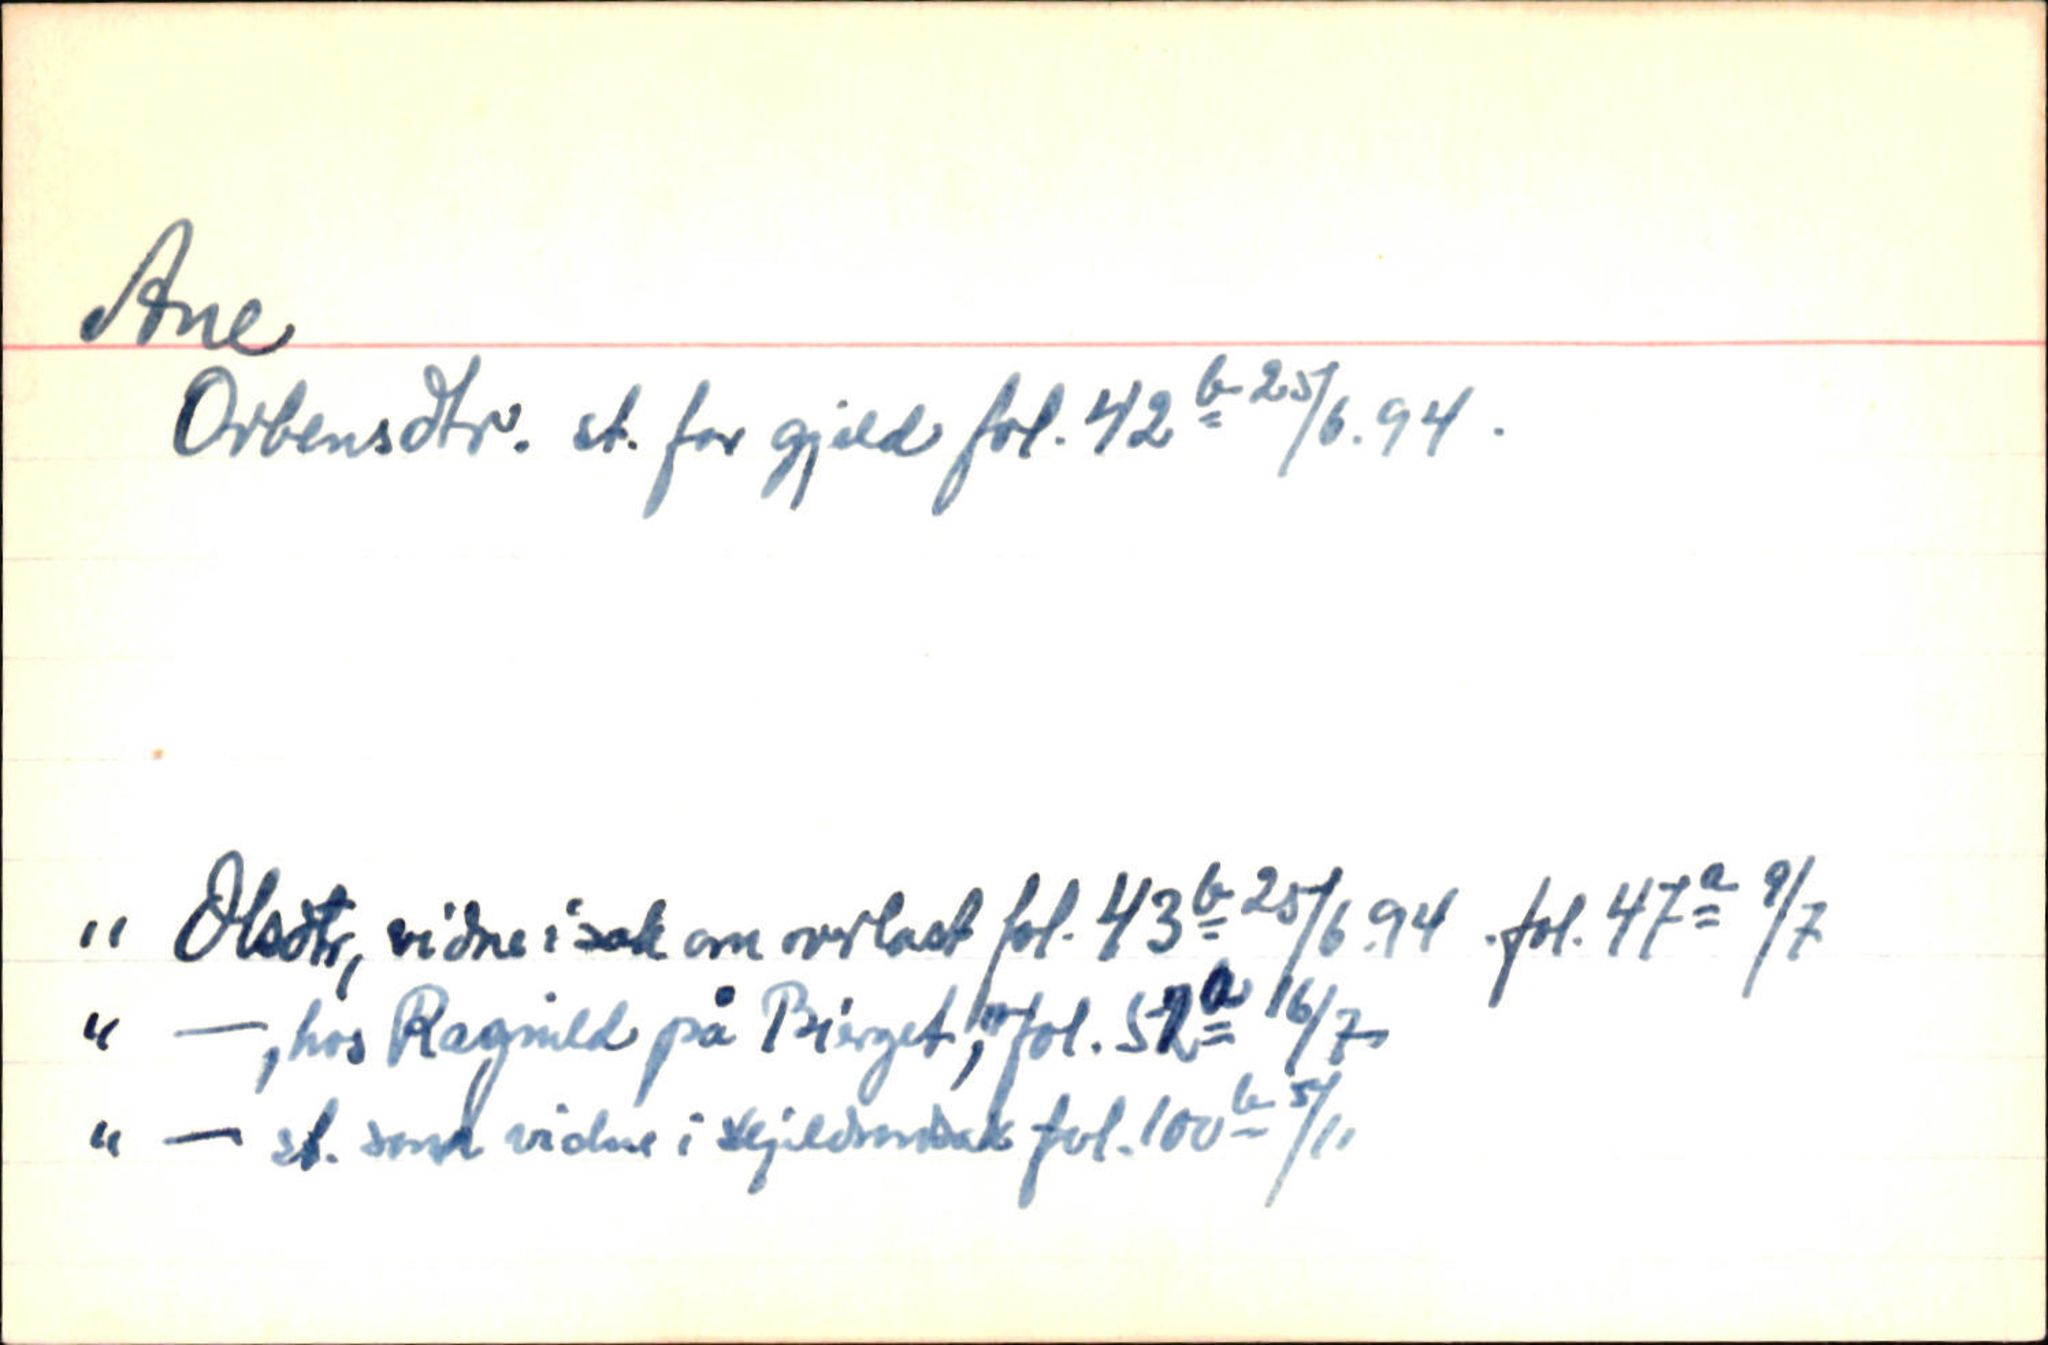 Ane
Orbensdtr. st. for gjeld fol. 42b 25/6.94.
" Olsdtr, vidne i sak om overlast fol. 43b 25/6.94. fol. 47a 9/7
" —, hos Ragnild på Bierget," fol. 52a 16/7
" — st. som vidne i skjeldsordsak fol. 100b 5/11